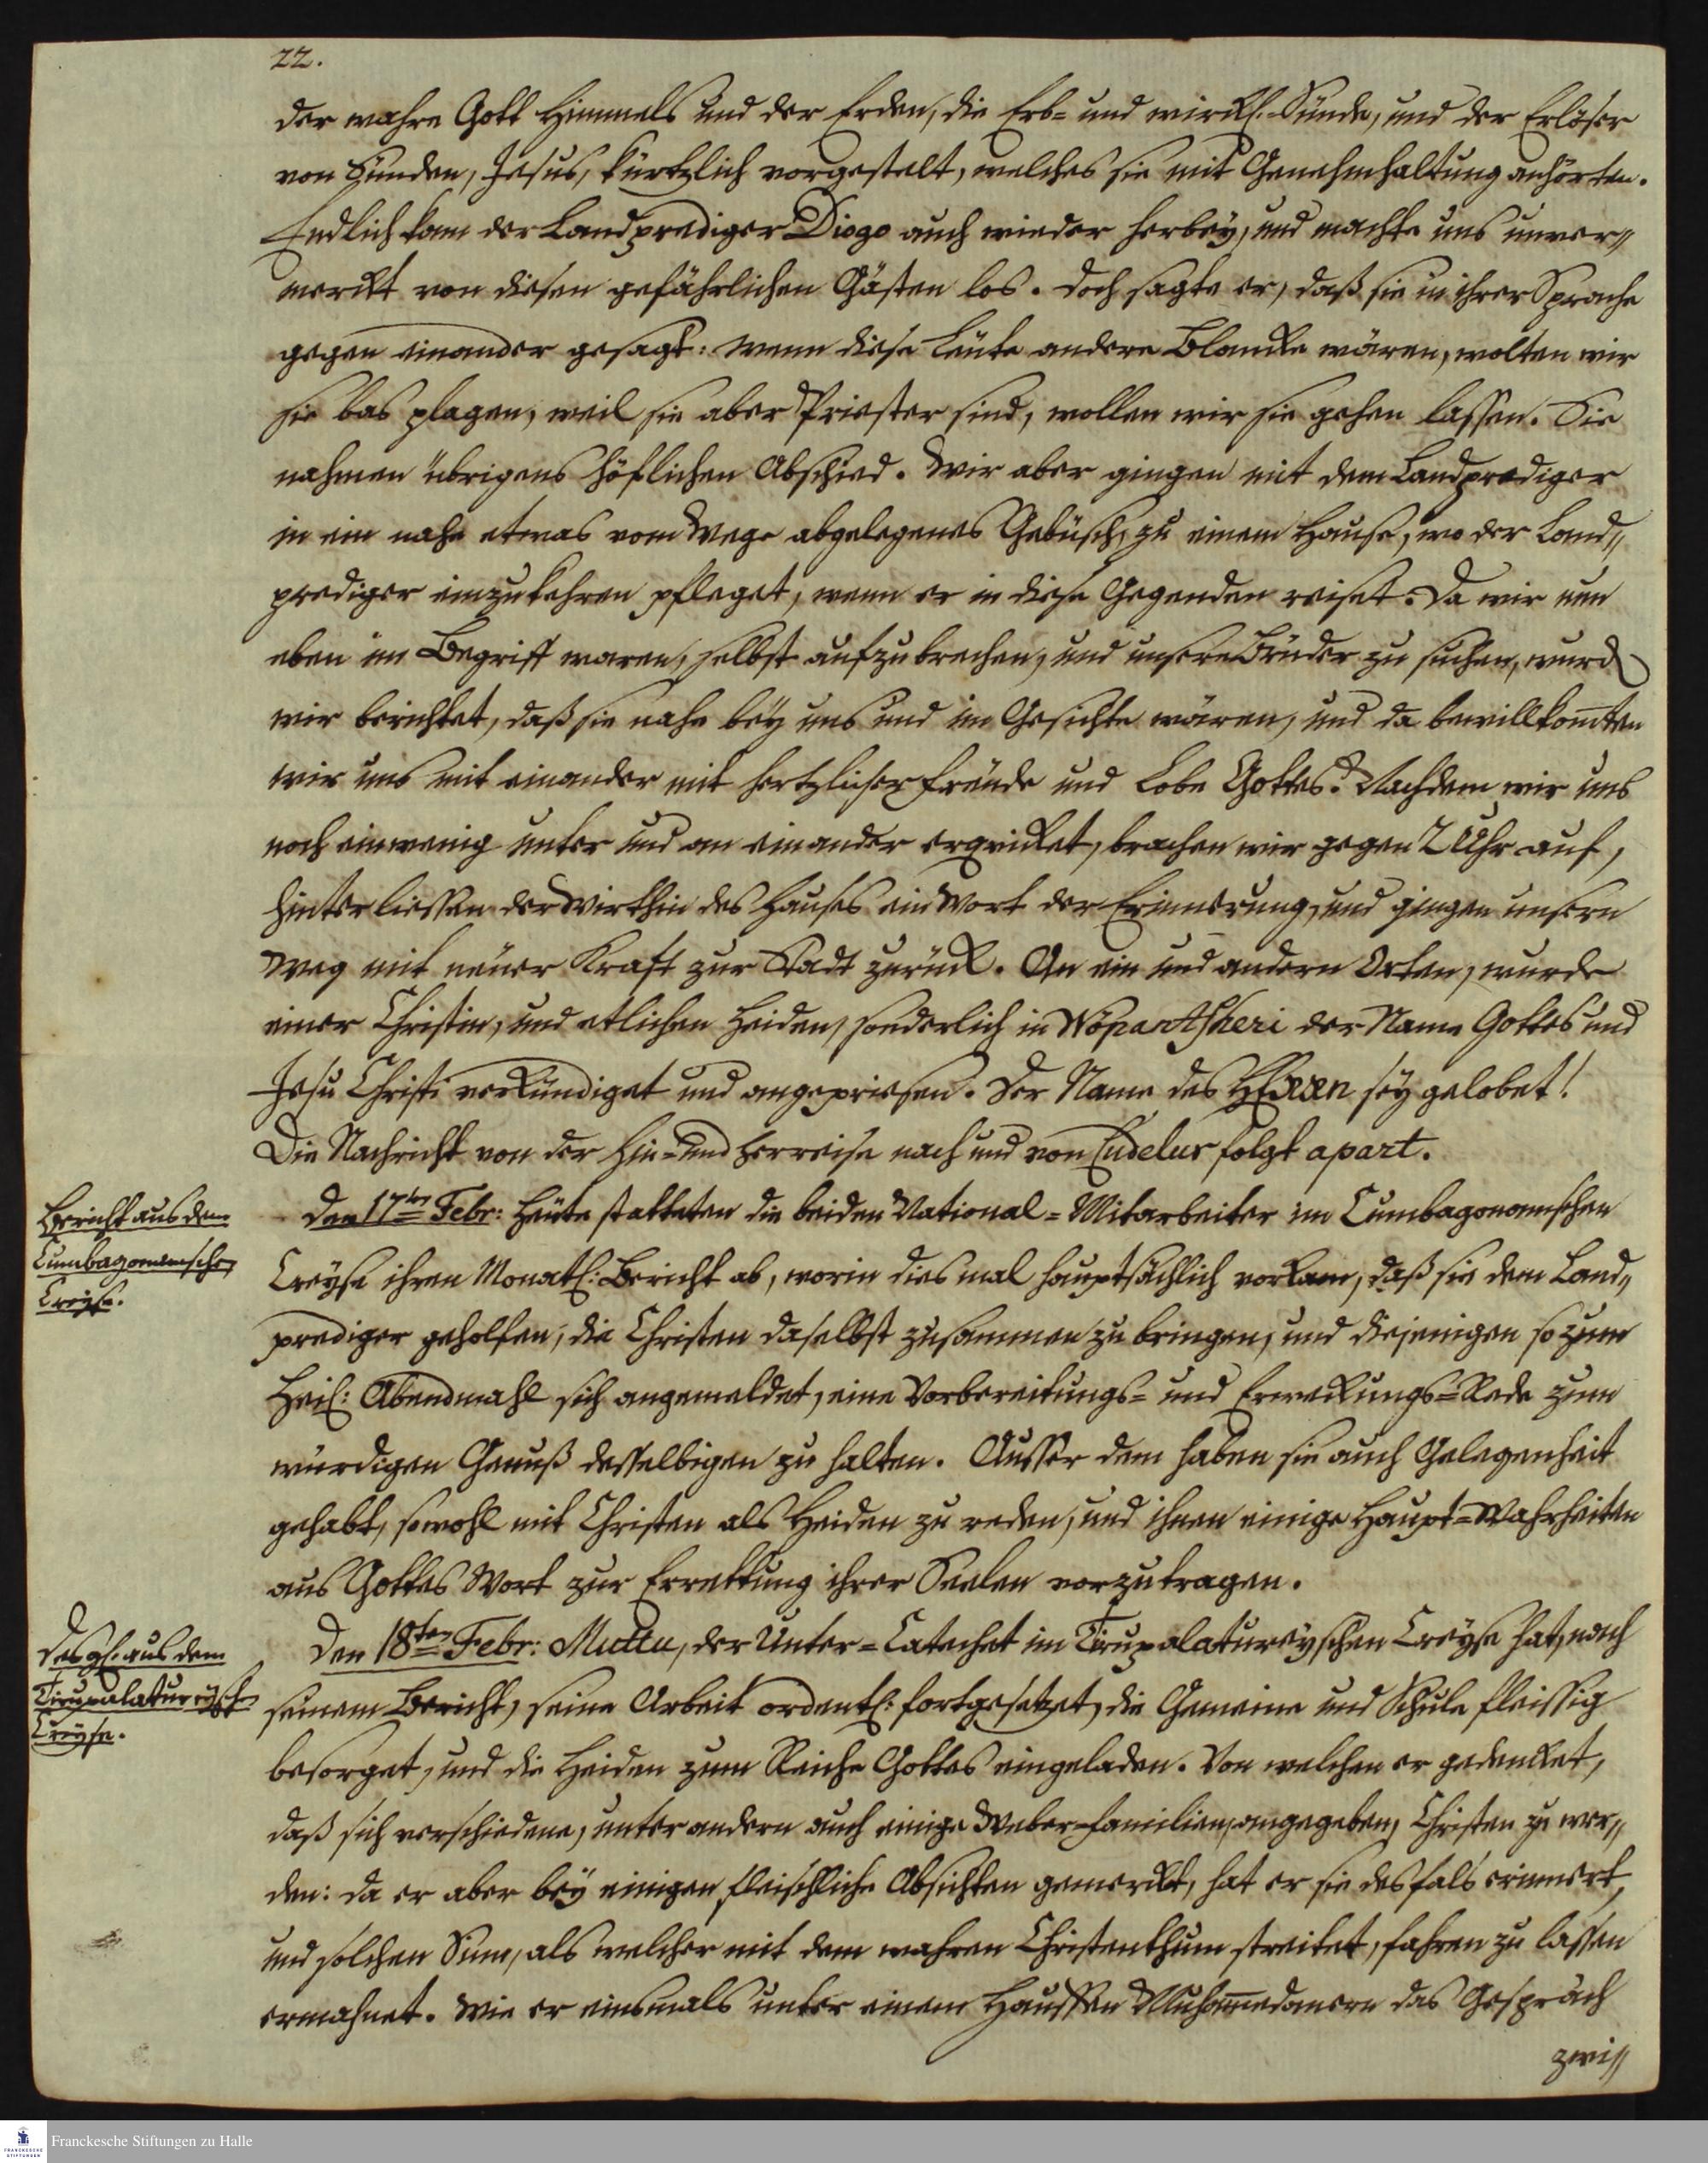 22.
der wahre Gott Himmels und der Erden, die Erb- und wirkl. Sünde, und der Erlöser
von Sünden, Jesus, kürtzlich vorgestelt, welches sie mit Genehmhaltung anhörten.
Endlich kam der Landprediger Diogo auch wieder herbey, und machte uns unver-
merckt von diesen gefährlichen Gästen los. Doch sagte er, daß sie in ihrer Sprache
gegen einander gesagt: wenn diese Leute andere Blancke wären, wolten wir
sie bas plagen, weil sie aber Priester sind, wollen wir sie gehen lassen. Sie
nahmen übrigens höflichen Abschied. Wir aber gingen mit dem Landprediger
in ein nahe etwas vom Wege abgelegenes Gebüsch, zu einem Hause, wo der Land-
prediger einzukehren pfleget, wenn er in diese Gegenden reiset. Da wir nun
eben im Begriff waren, selbst aufzubrechen, und unsere Brüder zu suchen, wurd
wir berichtet, daß sie nahe bey uns und im Gesichte wären, und da bewillkom̅ten
wir uns mit einander mit hertzlicher Freude und Lobe Gottes. Nachdem wir uns
noch ein wenig unter und an einander erquicket, brachen wir gegen 2 Uhr auf,
hinterliessen der Wirthin des Hauses ein Wort der Erinnerung, und gingen unsern
Weg mit neuer Kraft zur Stadt zurück. An ein und andern Orten, wurde
einer Christin, und etlichen Heiden, sonderlich in Wöpantscheri der Name Gottes und
Jesu Christi verkündiget und angepriesen. Der Name des HErrn sey gelobet!
Die Nachricht von der Hin- und Herreise nach und von Cudelur folgt apart.
Bericht aus dem
Cumbagonamschen
Creyse.
Den 17ten Febr: Heute statteten die beiden National-Mitarbeiter im Cumbagonamschen
Creyse ihren Monatl: Bericht ab, worin dies mal hauptsächlich vorkam, daß sie dem Land-
prediger geholfen, die Christen daselbst zusammen zu bringen, und diejenigen so zum
Heil: Abendmahl sich angemeldet, eine Vorbereitungs- und Erweckungs-Rede zum
würdigen Genuß desselbigen zu halten. Ausser dem haben sie auch Gelegenheit
gehabt, sowohl mit Christen als Heiden zu reden, und ihnen einige Haupt-Wahrheiten
aus Gottes Wort zur Errettung ihrer Seelen vorzutragen.
Desgl. aus dem
Tirupalatureyschen
Creyse.
Den 18ten Febr: Muttu, der Unter-Catechet im Tirupalatureyschen Creyse hat, nach
seinem Bericht, seine Arbeit ordentl: fortgesetzet, die Gemeine und Schule fleissig
besorget, und die Heiden zum Reiche Gottes eingeladen. Von welchen er gedencket,
daß sich verschiedene, unter andern auch einige Weber-Familien, angegeben, Christen zu wer-
den: da er aber bey einigen fleischliche Absichten gemerckt, hat er sie desfals erinnert,
und solchen Sinn, als welcher mit dem wahren Christenthum streitet, fahren zu lassen
ermahnet. Wie er einsmals unter einem Hauffen Muham̅edanern das Gespräch
zwi-
FRANCKESCHE
STIFTUNGEN
Franckesche Stiftungen zu Halle